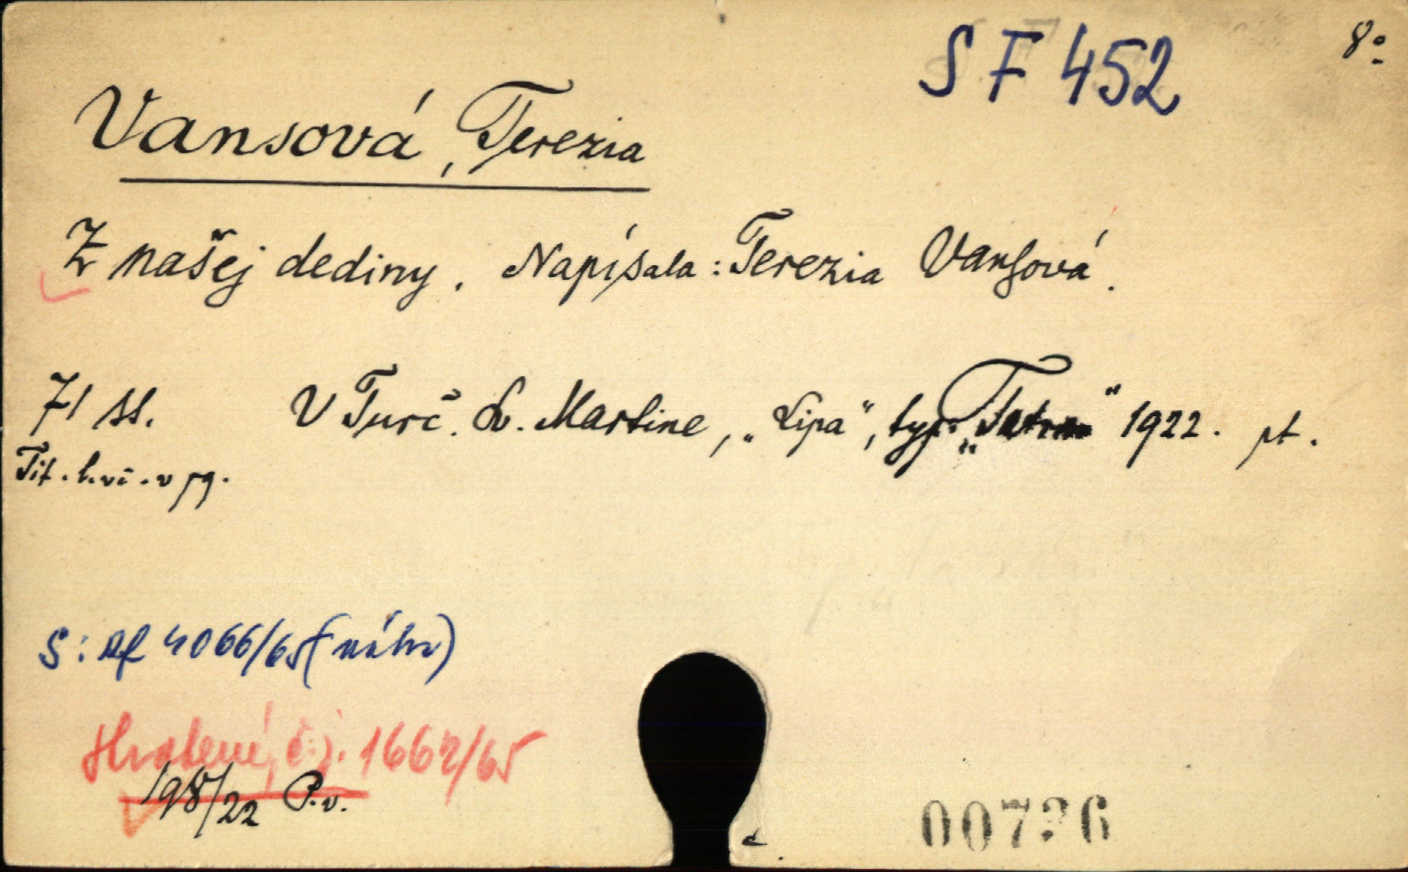 S F 452
8°
Vansová, Terezia
Z našej dediny. Napísala: Terezia Vansová.
71 s. V Turč. Sv. Martine, „Lipa", typ. „Tatra" 1922. pt.
Tit. v
S: Af 4066/65 (náhr)
č. j. 1662/65
198/22 P. v.